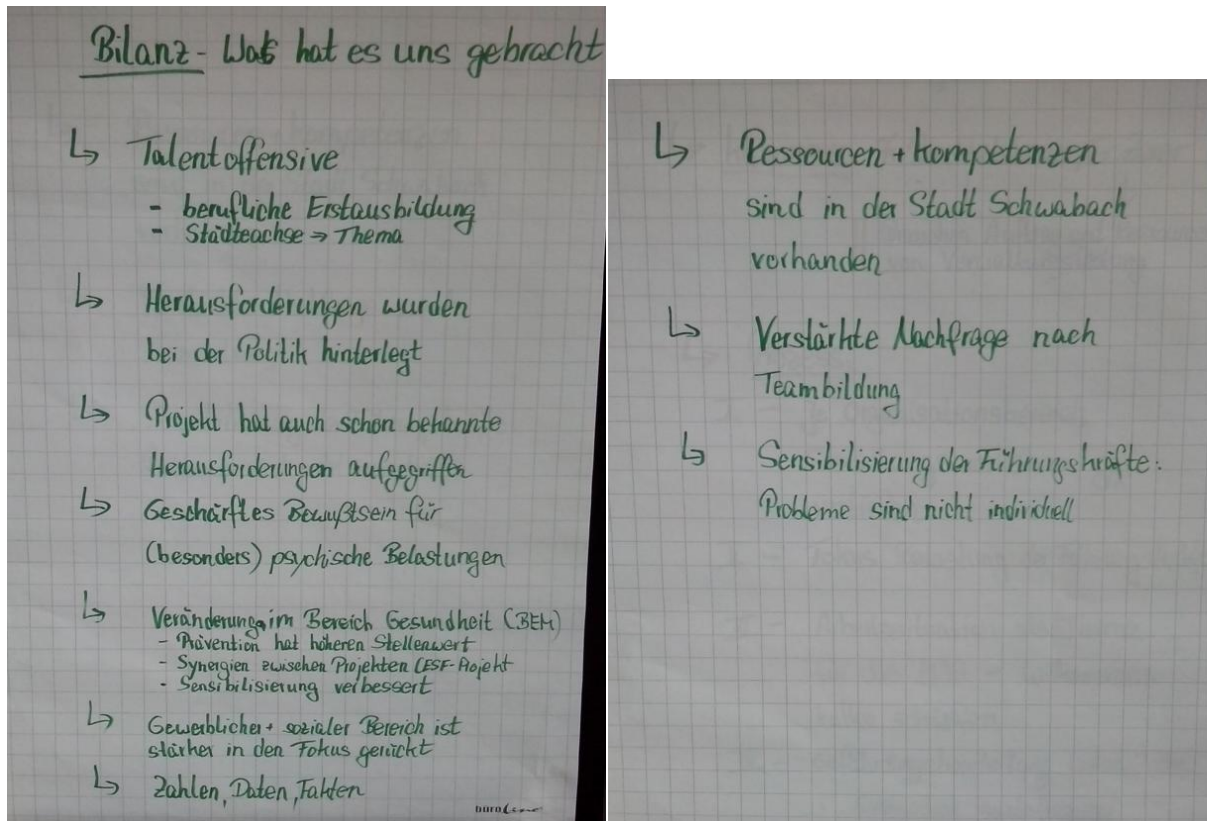 Bilanz - Was hat es uns gebracht
↳ Talentoffensive
- berufliche Erstausbildung
- Städteachse ⇒ Thema
↳ Herausforderungen wurden
bei der Politik hinterlegt
↳ Projekt hat auch schon bekannte
Herausforderungen aufgegriffen
↳ Geschärftes Bewußtsein für
(besonders) psychische Belastungen
↳ Veränderung im Bereich Gesundheit (BEM)
- Prävention hat höheren Stellenwert
- Synergien zwischen Projekten (ESF-Projekt
- Sensibilisierung verbessert
↳ Gewerblicher + sozialer Bereich ist
stärker in den Fokus gerückt
↳ Zahlen, Daten, Fakten
↳ Ressourcen + Kompetenzen
sind in der Stadt Schwabach
vorhanden
↳ Verstärkte Nachfrage nach
Teambildung
↳ Sensibilisierung der Führungskräfte:
Probleme sind nicht individuell